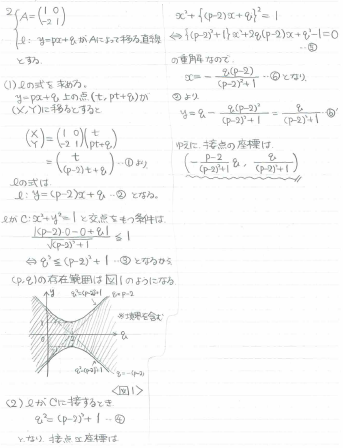 2 { A = (1 0 -2 1)
l: y=px+q がAによって移る直線
とする.
(1) lの式を求める.
y=px+q 上の点(t, pt+q)が
(X, Y)に移るとすると
(X Y) = (1 0 -2 1)(t pt+q)
= (t (p-2)t+q) …① より
lの式は
l: y=(p-2)x+q …② となる.
lが C: x²+y²=1 と交点をもつ条件は
|(p-2)·0-0+q| / √((p-2)²+1) ≦ 1
⇔ q² ≦ (p-2)²+1 …③ となるから
(p, q)の存在範囲は図1のようになる
y
q²=(p-2)²+1
q=p-2
※境界を含む
1
2
q
q²=(p-2)²+1
q=-(p-2)
<図1>
(2) lがCに接するとき
q²=(p-2)²+1 …④
となり, 接点のx座標は
x²+{(p-2)x+q}²=1
⇔ {(p-2)²+1}x²+2q(p-2)x+q²-1=0
…⑤
の重解なので
x = - q(p-2) / ((p-2)²+1) …⑥ となり
② より
y = q - q(p-2)² / ((p-2)²+1) = q / ((p-2)²+1) …⑥'
ゆえに, 接点の座標は
(- (p-2) / ((p-2)²+1) q, q / ((p-2)²+1))